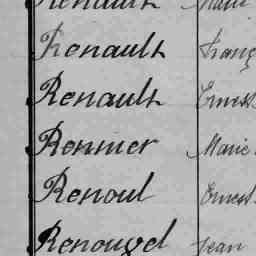 Renault Marie
Renault Franç
Renault Ernest
Renmer Marie
Renoul Ernest
Renouvel Jean